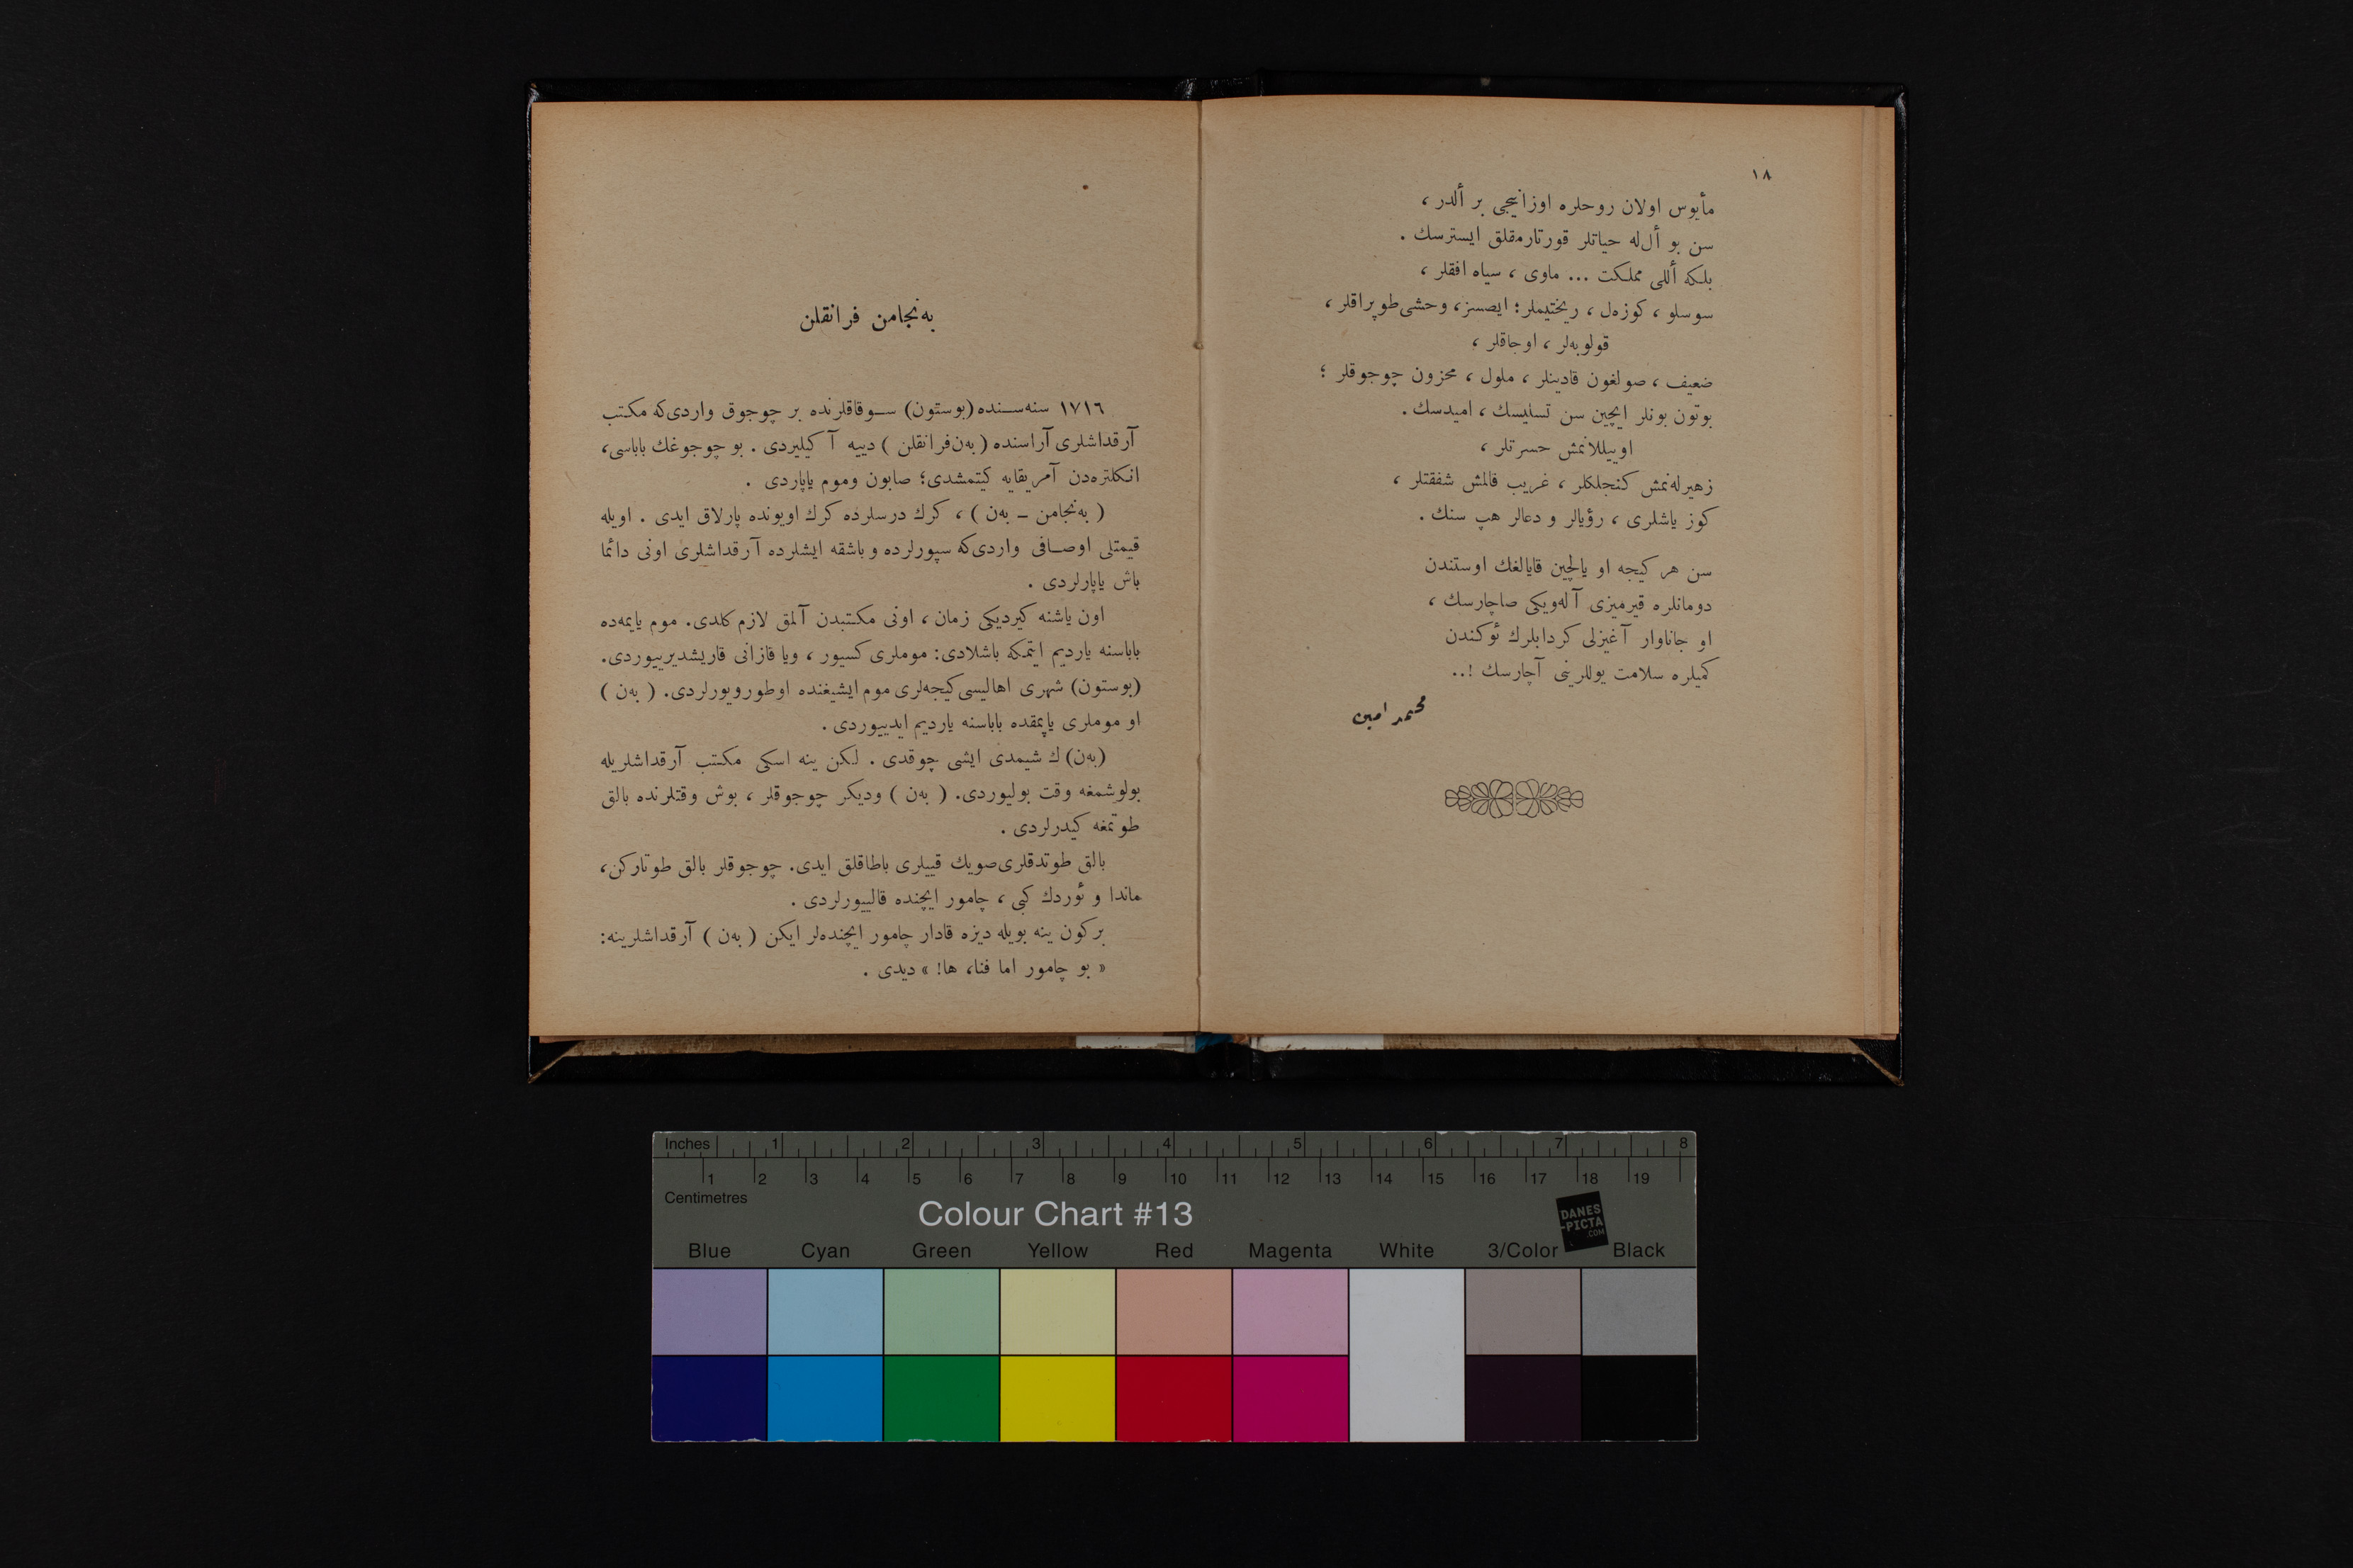 ١٨
مأیوس اولان روحلره اوزانیجی بر ألدر ،
سن بو أل‌له حیاتلر قورتارمقلق ایسترسك .
بلكه أللی مملكت ... ماوی ، سیاه افقلر ،
سوسلو ، كوزەل ، ریختیملر؛ ایصسز، وحشی طوپراقلر ،
قولوبەلر ، اوجاقلر ،
ضعیف ، صولغون قادینلر ، ملول ، محزون چوجوقلر ؛
بوتون بونلر ایچین سن تسلیسك ، امیدسك .
اوییللانمش حسرتلر ،
زهیرلەنمش كنجلكلر ، غریب قالمش شفقتلر ،
كوز یاشلری ، رؤیالر و دعالر هپ سنك .
سن هر كیجه او یالچین قایالغك اوستندن
دومانلره قیرمیزی آلەویكی صاچارسك ،
او جاناوار آغیزلی كردابلرك ئوكندن
كمیلره سلامت یوللرینی آچارسك !..
محمد امین
بەنجامن فرانقلن
١٧١٦ سنەسنده (بوستون) سوقاقلرنده بر چوجوق واردی‌كه مكتب
آرقداشلری آراسنده ( بەن‌فرانقلن ) دییه آ كیلیردی . بو چوجوغك باباسی،
انكلترەدن آمریقایه كیتمشدی؛ صابون وموم یاپاردی .
( بەنجامن ـ بەن ) ، كرك درسلرده كرك اویونده پارلاق ایدی . اویله
قیمتلی اوصافی واردی‌كه سپورلرده و باشقه ایشلرده آرقداشلری اونی دائما
باش یاپارلردی .
اون یاشنه كیردیكی زمان ، اونی مكتبدن آلمق لازم كلدی. موم یاپمەده
باباسنه یاردیم ایتمكه باشلادی: موملری كسیور ، ویا قازانی قاریشدیرییوردی.
(بوستون) شهری اهالیسی كیجەلری موم ایشیغنده اوطورویورلردی. ( بەن )
او موملری یاپمقده باباسنه یاردیم ایدییوردی .
(بەن) ك شیمدی ایشی چوقدی . لكن ینه اسكی مكتب آرقداشلریله
بولوشمغه وقت بولیوردی. ( بەن ) ودیكر چوجوقلر ، بوش وقتلرنده بالق
طوتمغه كیدرلردی .
بالق طوتدقلری صویك قییلری باطاقلق ایدی. چوجوقلر بالق طوتاركن،
ماندا و ئوردك كبی ، چامور ایچنده قالییورلردی .
بركون ینه بویله دیزه قادار چامور ایچندەلر ایكن ( بەن ) آرقداشلرینه:
« بو چامور اما فنا، ها! » دیدی .
Inches 1 2 3 4 5 6 7 8
1 2 3 4 5 6 7 8 9 10 11 12 13 14 15 16 17 18 19
Centimetres
Colour Chart #13
DANES
-PICTA
.COM
Blue Cyan Green Yellow Red Magenta White 3/Color Black